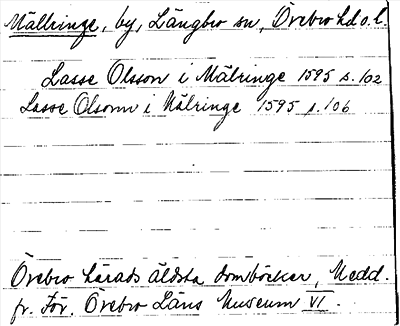 Mällringe, by, Längbro sn, Örebro hd o. l.
Lasse Olsson i Mälringe 1595 s. 102
Lasse Olsonn i Nälringe 1595 s. 106
Örebro härads äldsta domböcker, Medd.
fr. För. Örebro Läns Museum VI.